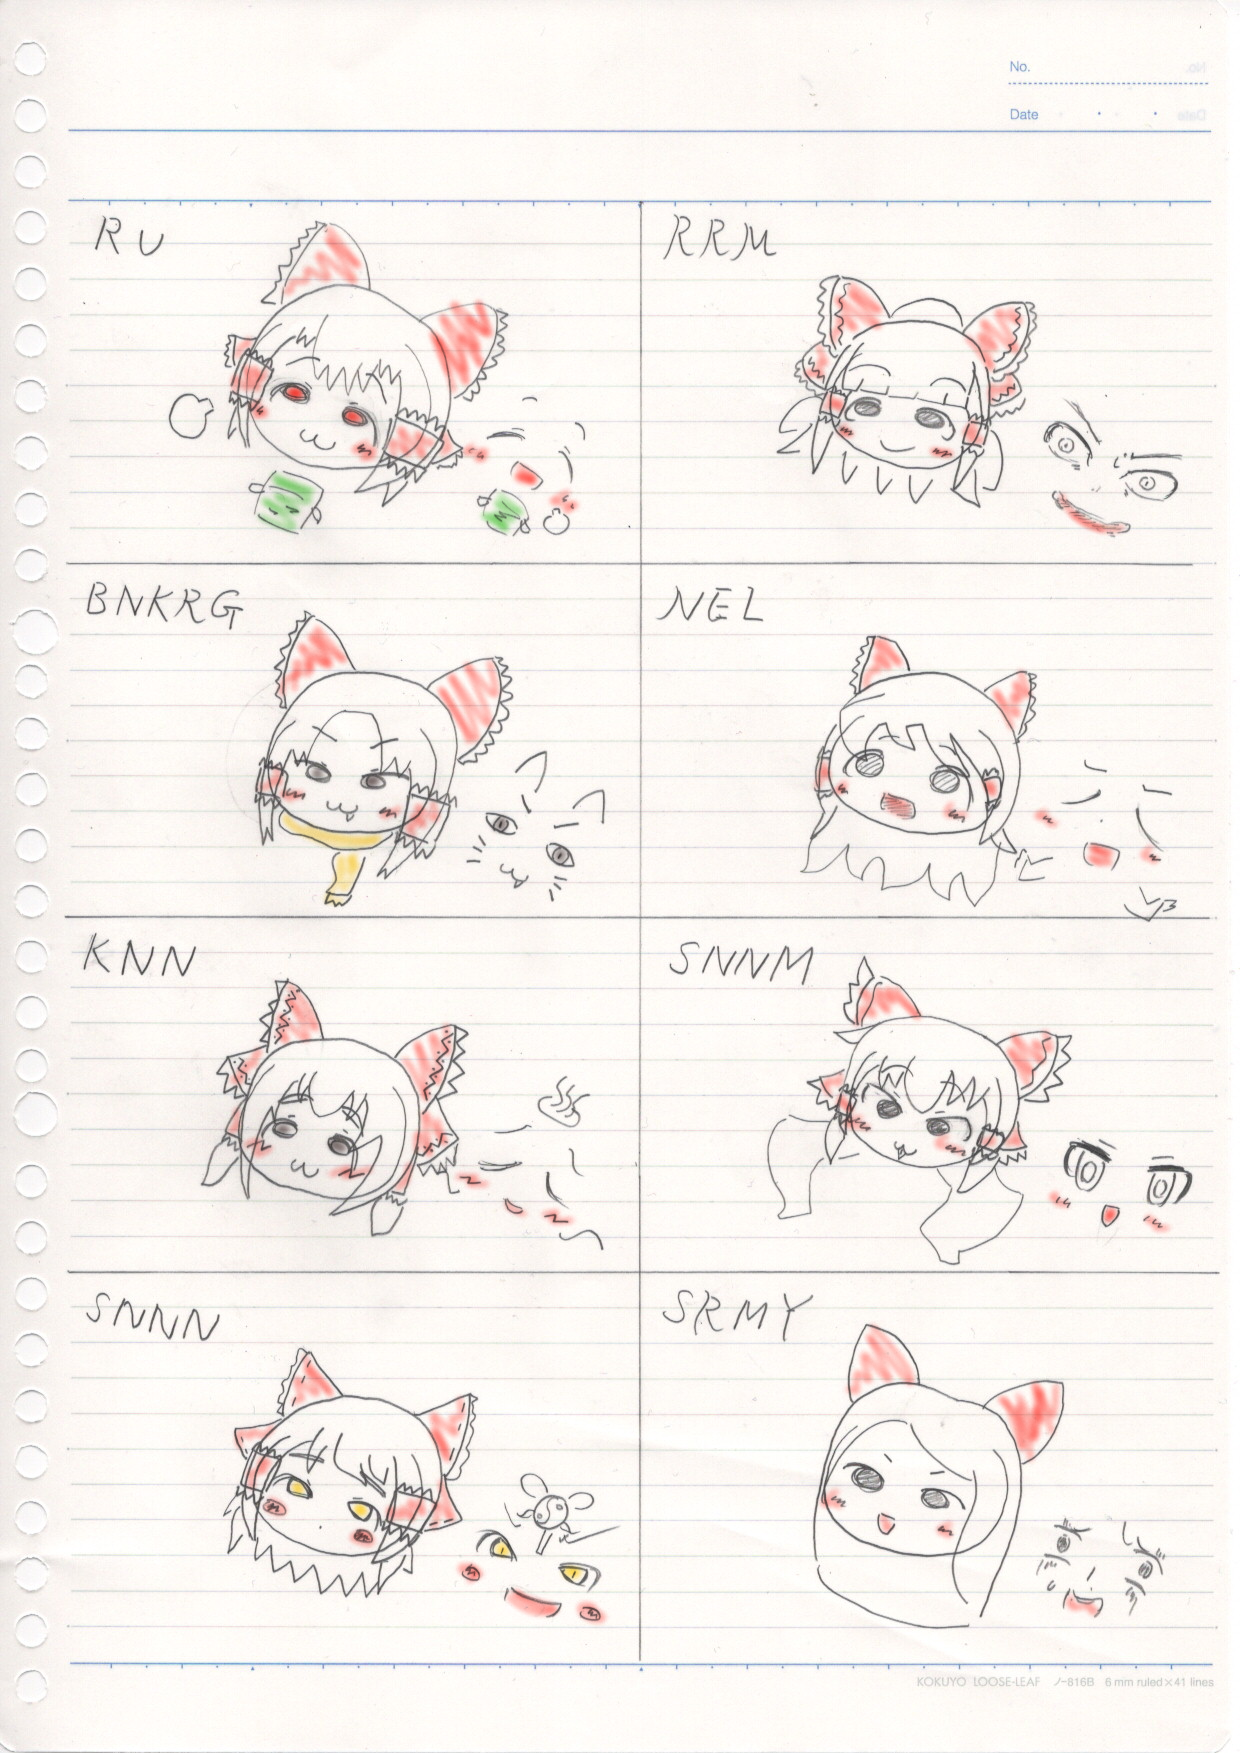 No.
Date
RU
RRM
BNKRG
NEL
KNN
SNNM
SNNN
SRMY
KOKUYO LOOSE-LEAF ノ-816B 6 mm ruled×41 lines